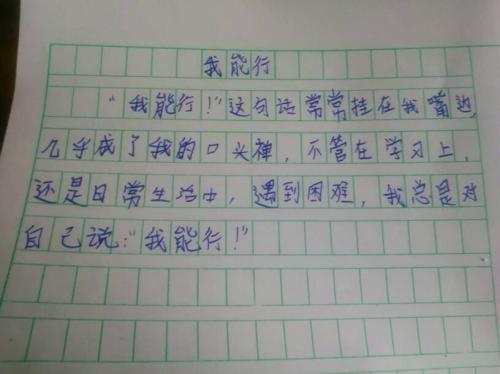 我能行
“我能行!”这句话常常挂在我嘴边
几乎成了我的口头禅，不管在学习上，
还是日常生活中，遇到困难，我总是对
自己说:“我能行!”